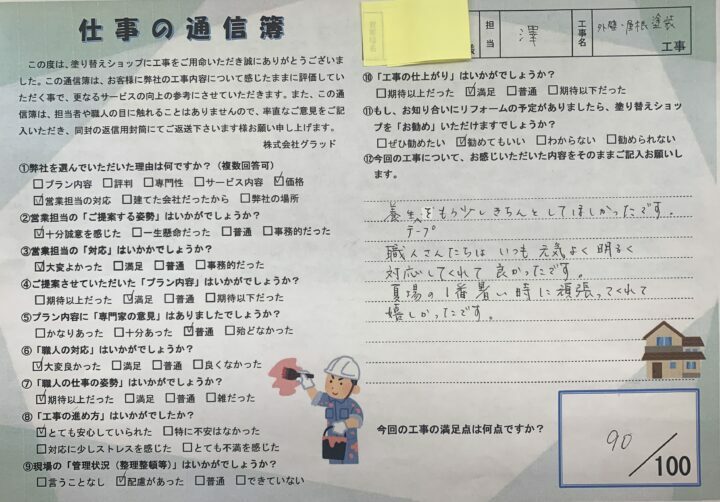 仕事の通信簿
この度は、塗り替えショップに工事をご用命いただき誠にありがとうございま
した。この通信簿は、お客様に弊社の工事内容について感じたままに評価してい
ただく事で、更なるサービスの向上の参考にさせていただきます。また、この通
信簿は、担当者や職人の目に触れることはありませんので、率直なご意見をご記
入いただき、同封の返信用封筒にてご返送下さいます様お願い申し上げます。
株式会社グラッド
①弊社を選んでいただいた理由は何ですか？（複数回答可）
□プラン内容 □評判 □専門性 □サービス内容 ☑価格
☑営業担当の対応 □建てた会社だったから □弊社の場所
②営業担当の「ご提案する姿勢」はいかがでしょうか？
☑十分誠意を感じた □一生懸命だった □普通 □事務的だった
③営業担当の「対応」はいかかでしょうか？
☑大変よかった □満足 □普通 □事務的だった
④ご提案させていただいた「プラン内容」はいかがでしょうか？
□期待以上だった ☑満足 □普通 □期待以下だった
⑤プラン内容に「専門家の意見」はありましたでしょうか？
□かなりあった □十分あった ☑普通 □殆どなかった
⑥「職人の対応」はいかがでしょうか？
☑大変良かった □満足 □普通 □良くなかった
⑦「職人の仕事の姿勢」はいかがでしょうか？
☑期待以上だった □満足 □普通 □雑だった
⑧「工事の進め方」はいかがでしたか？
☑とても安心していられた □特に不安はなかった
□対応に少しストレスを感じた □とても不満を感じた
⑨現場の「管理状況（整理整頓等）」はいかがでしょうか？
□言うことなし ☑配慮があった □普通 □できていない
様 担当 澤 工事名 外壁・屋根塗装 工事
⑩「工事の仕上がり」はいかがでしょうか？
□期待以上だった ☑満足 □普通 □期待以下だった
⑪もし、お知り合いにリフォームの予定がありましたら、塗り替えショッ
プを「お勧め」いただけますでしょうか？
□ぜひ勧めたい ☑勧めてもいい □わからない □勧められない
⑫今回の工事について、お感じいただいた内容をそのままご記入お願いし
ます。
養生をもう少しきちんとしてほしかったです。
テープ
職人さんたちは いつも元気よく明るく
対応してくれて 良かったです。
夏場の1番暑い時に頑張ってくれて
嬉しかったです。
今回の工事の満足点は何点ですか？
90/100